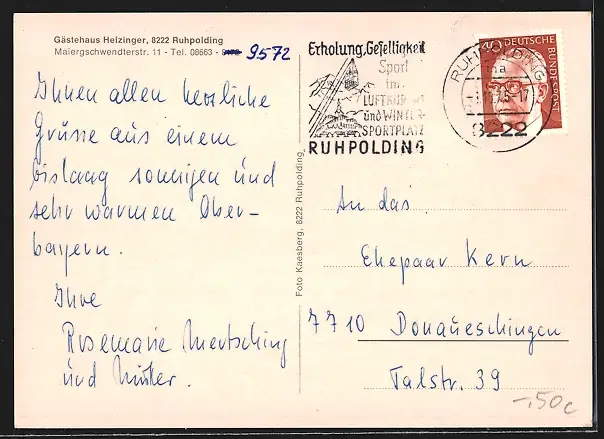 Gästehaus Heizinger, 8222 Ruhpolding
Maiergschwendterstr. 11 - Tel. 08663 - 9572
Ihnen allen herzliche
Grüsse aus einem
bislang sonnigen und
sehr warmen Ober-
bayern.
Ihre
Rosemarie Mertsching
und Mutter.
Foto Kaesberg, 8222 Ruhpolding
Erholung, Geselligkeit
Sport
im
LUFTKUR-
und WINTER-
SPORTPLATZ
RUHPOLDING
RUHPOLDING
8222
40 DEUTSCHE BUNDESPOST
An das
Ehepaar Kern
7710 Donaueschingen
Talstr. 39
-,50c